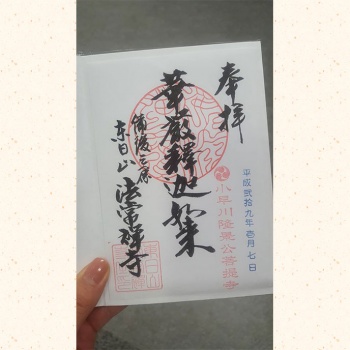 奉拝
平成弐拾九年壱月七日
小早川隆景公菩提寺
華厳釈迦如来
備後三原
東日山 法常禅寺